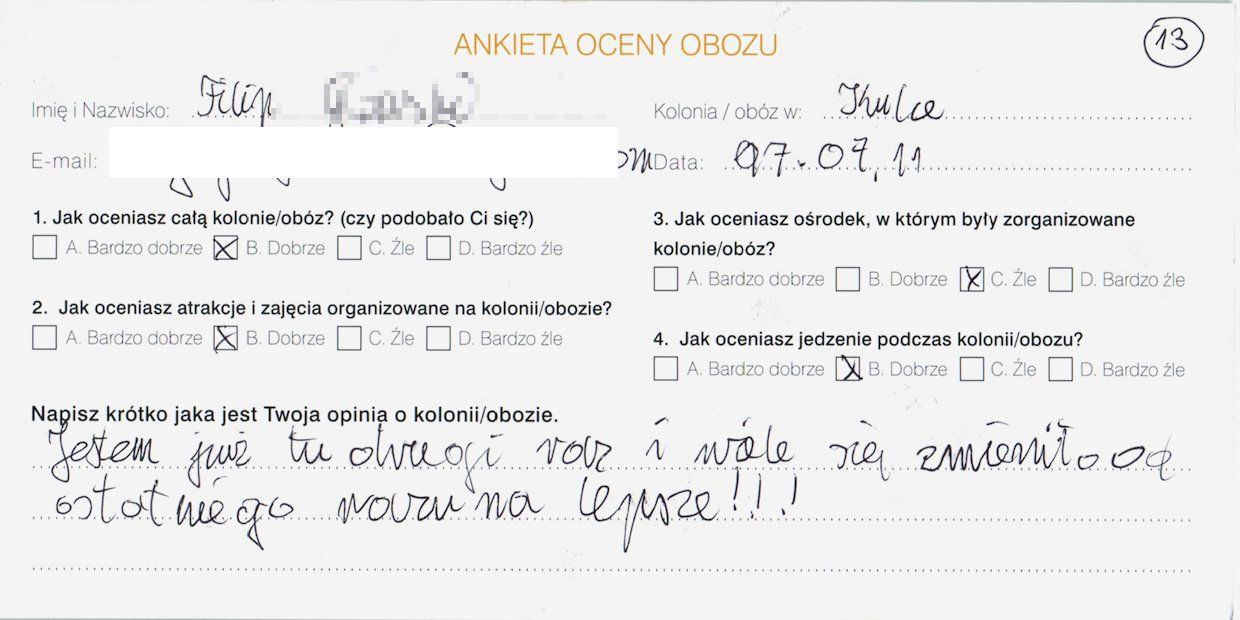 ANKIETA OCENY OBOZU
13
Imię i Nazwisko: Filip
Kolonia / obóz w:
E-mail: om
Data: 07.07.11
1. Jak oceniasz całą kolonie/obóz? (czy podobało Ci się?)
A. Bardzo dobrze B. Dobrze C. Źle D. Bardzo źle
2. Jak oceniasz atrakcje i zajęcia organizowane na kolonii/obozie?
A. Bardzo dobrze B. Dobrze C. Źle D. Bardzo źle
3. Jak oceniasz ośrodek, w którym były zorganizowane
kolonie/obóz?
A. Bardzo dobrze B. Dobrze C. Źle D. Bardzo źle
4. Jak oceniasz jedzenie podczas kolonii/obozu?
A. Bardzo dobrze B. Dobrze C. Źle D. Bardzo źle
Napisz krótko jaka jest Twoja opinia o kolonii/obozie.
Jestem już tu drugi raz i wiele się zmieniło od
ostatniego razu na lepsze!!!